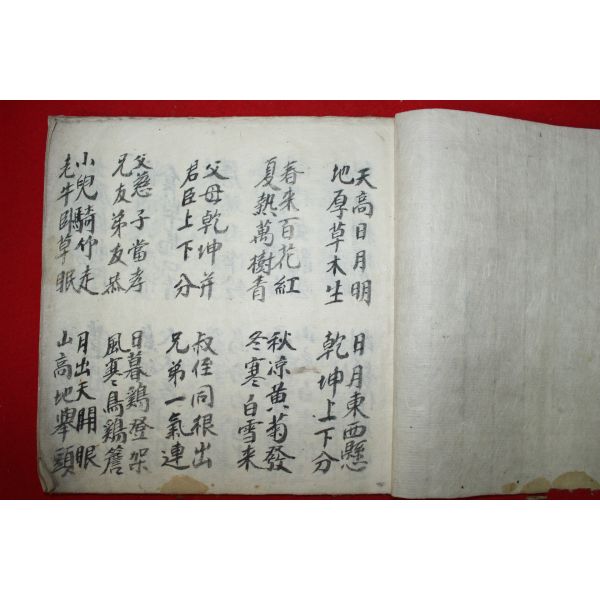 天高日月明
地厚草木生
日月東西懸
乾坤上下分
春来百花紅
夏熱萬樹青
秋凉黄菊發
冬寒白雪来
父母乾坤并
君臣上下分
叔侄同根出
兄弟一氣連
父慈子當孝
兄友弟友恭
日暮鷄橙架
風寒鳥鷄簷
小兒騎竹走
老牛臥草眠
月出天開眼
山高地擧頭